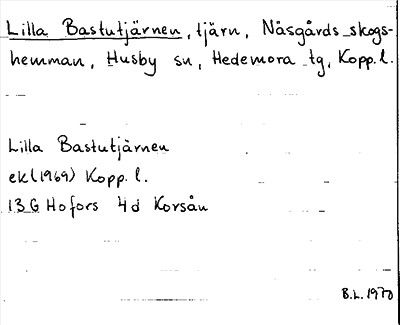 Lilla Bastutjärnen, tjärn, Näsgårds skogs-
hemman, Husby sn, Hedemora tg, Kopp. l.
Lilla Bastutjärnen
ek (1969) Kopp. l.
13 G Hofors 4d Korsån
B.L. 1970